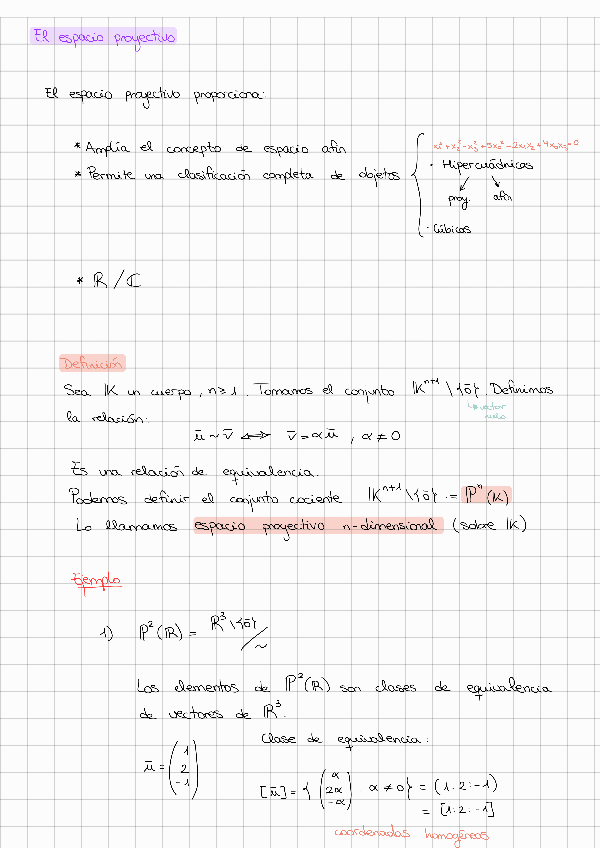 El espacio proyectivo
El espacio proyectivo proporciona:
* Amplía el concepto de espacio afín
* Permite una clasificación completa de objetos
x₁² + x₂² - x₃² + 5x₀² - 2x₁x₂ + 4x₀x₃ = 0
· Hipercuádricas
proy. afín
· Cúbicas
* ℝ / ℂ
Definición
Sea 𝕂 un cuerpo, n ≥ 1. Tomamos el conjunto 𝕂ⁿ⁺¹ \ {ō}. Definimos
↳ vector
nulo
la relación:
ū ~ v̄ ⟺ v̄ = αū , α ≠ 0
Es una relación de equivalencia.
Podemos definir el conjunto cociente 𝕂ⁿ⁺¹ \ {ō} := ℙⁿ(𝕂)
Lo llamamos espacio proyectivo n-dimensional (sobre 𝕂)
Ejemplo
1) ℙ²(ℝ) = ℝ³ \ {ō} / ~
Los elementos de ℙ²(ℝ) son clases de equivalencia
de vectores de ℝ³.
Clase de equivalencia:
ū = (1 2 -1)
[ū] = { (α 2α -α) α ≠ 0 } = (1:2:-1)
= [1:2:-1]
coordenadas homogéneas